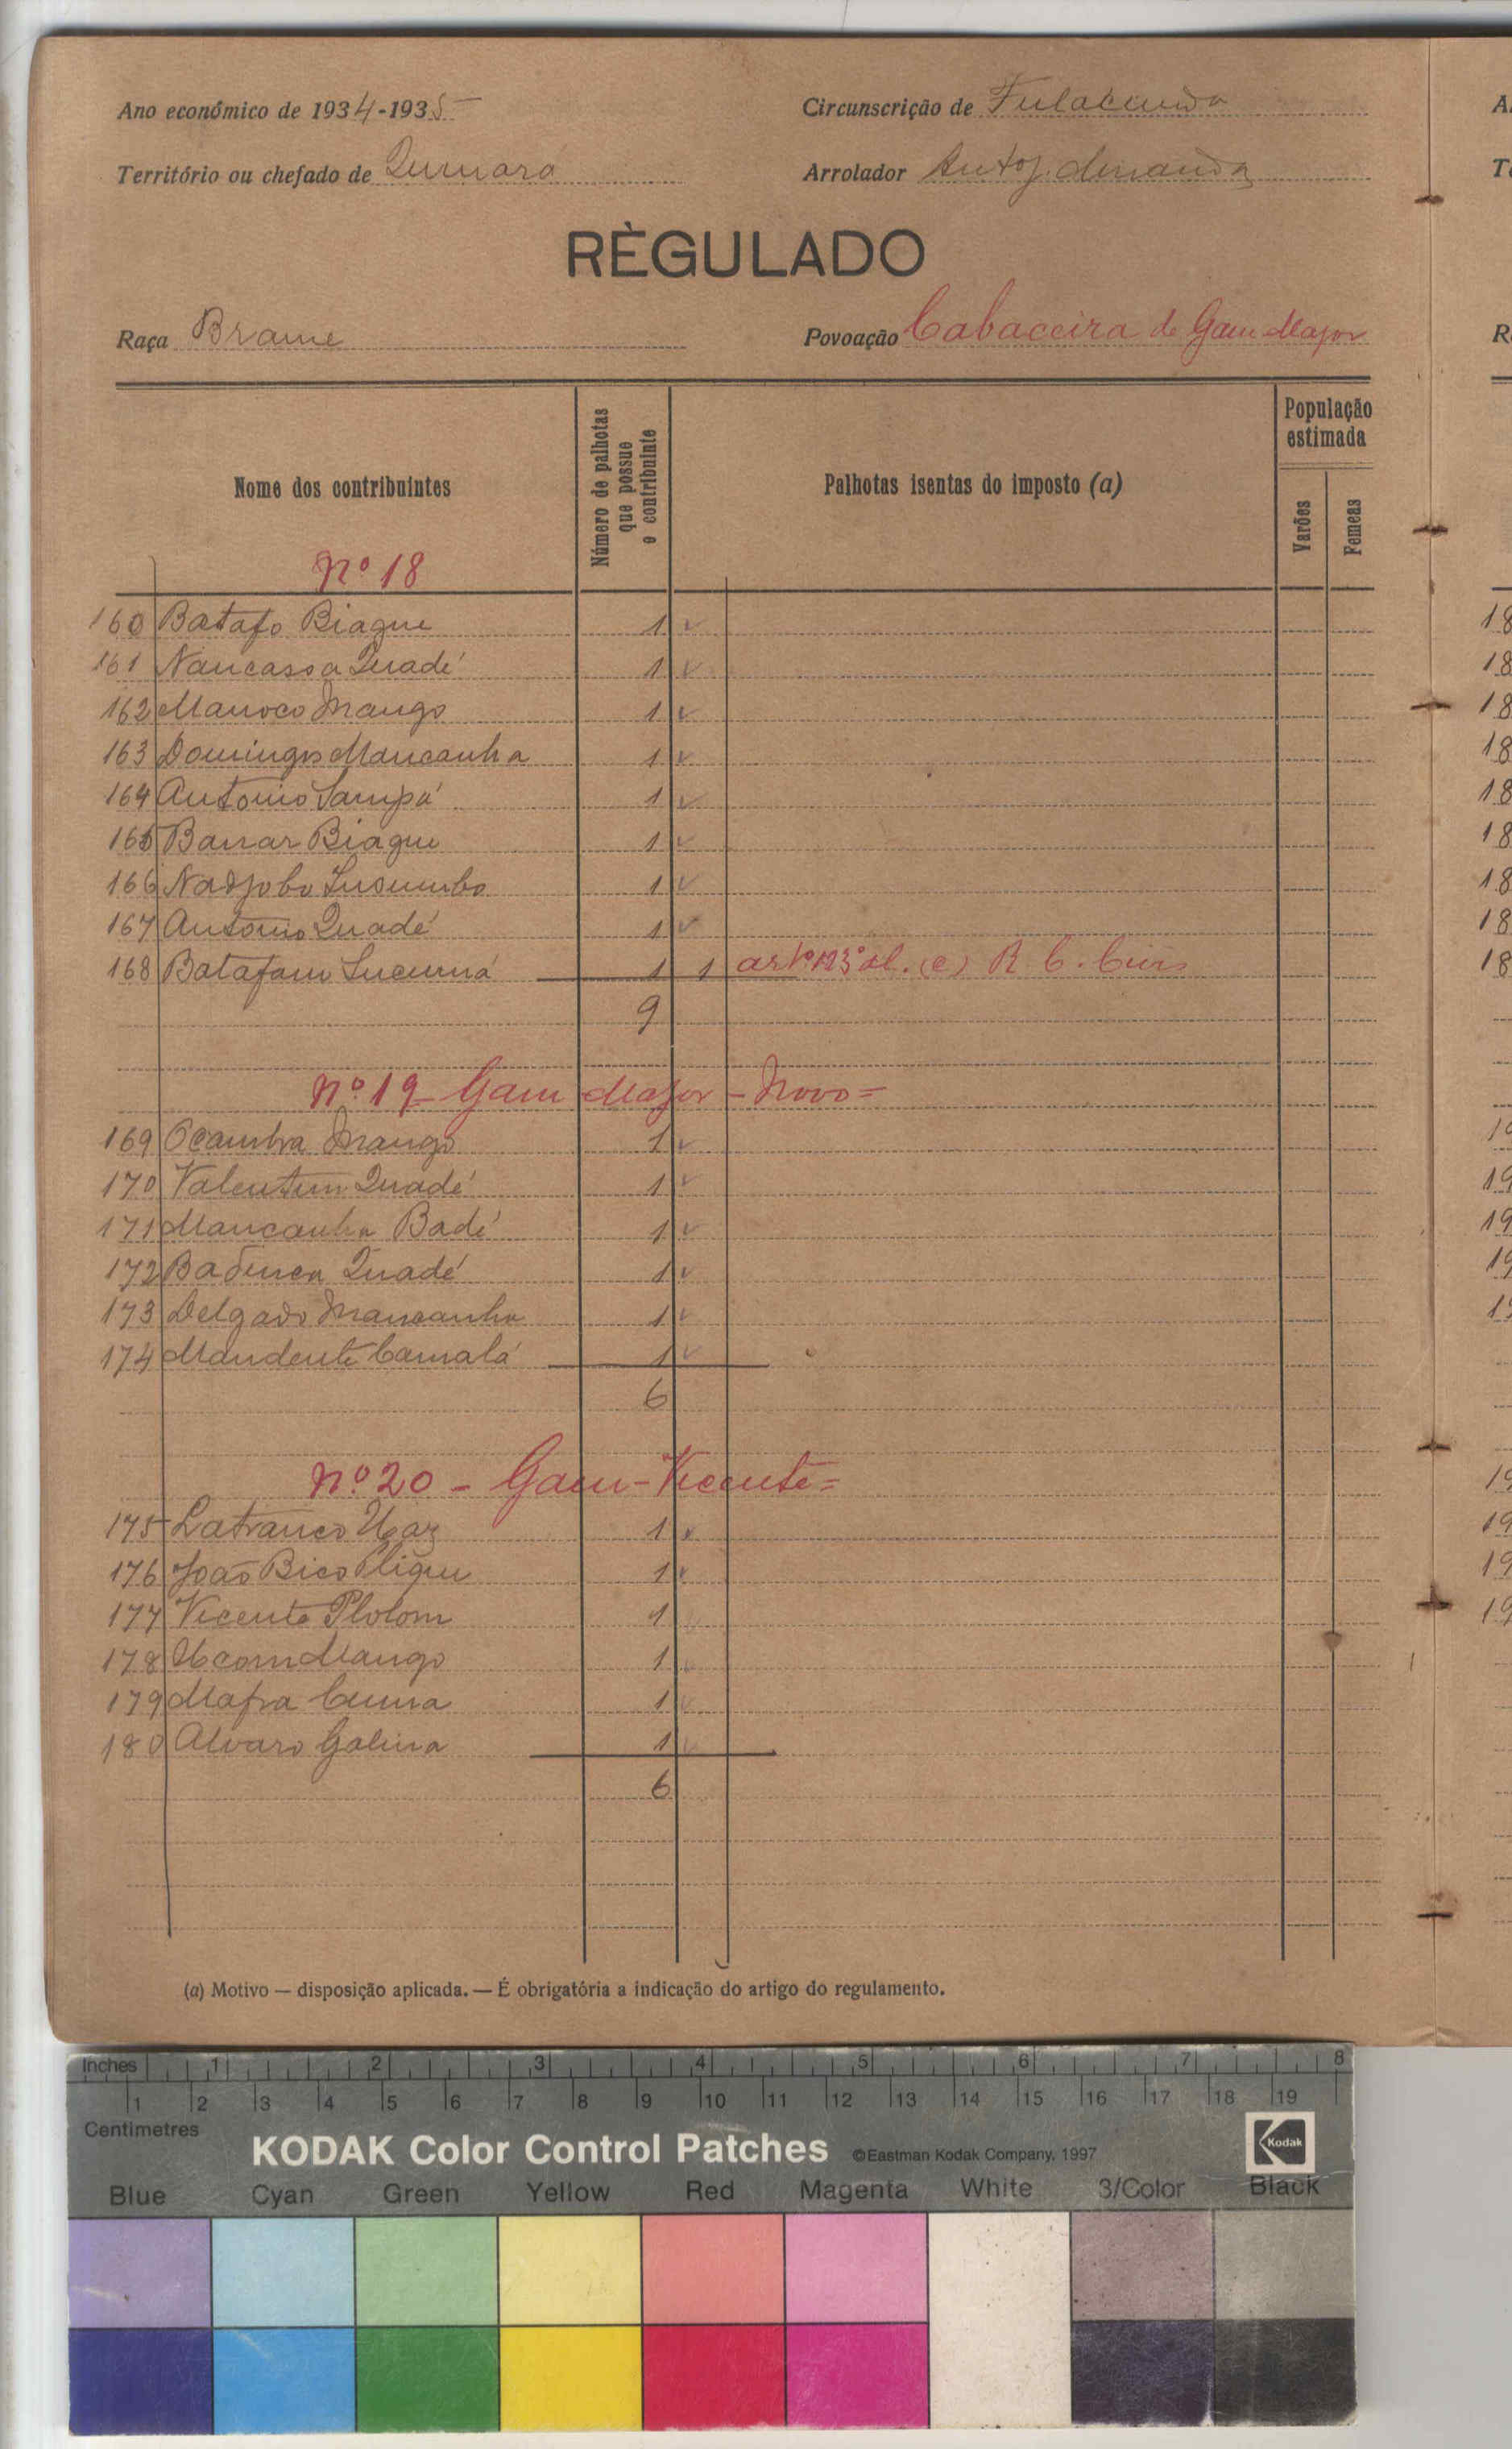 Ano económico de 1934-1935
Circunscrição de Fulacunda
Território ou chefado de Quinara
Arrolador
RÈGULADO
Raça Brame
Povoação Cabaceira de Gam Major
Nome dos contribuintes
Número de palhotas que possue o contribuinte
Palhotas isentas do imposto (a)
População estimada
Varões
Femeas
Nº 18
160 Batafo Biague 1
161 Nancassa Quadé 1
162 Manoco Mango 1
163 Domingos Mancanha 1
164 Antonio Sampá 1
165 Banar Biague 1
166 1
167 Antonio Quadé 1
168 Batafam 1 1 artº 123º al. (e) R. C. Circ
9
Nº 19 Gam Major - Novo =
169 Ocambra Mango 1
170 Valentim Quadé 1
171 Mancanha Badé 1
172 Badinca Quadé 1
173 Delgado Mancanha 1
174 Mandente Camalá 1
6
Nº 20 - Gam-Vicente =
175 Latranco 1
176 João Bico 1
177 Vicente Plolom 1
178 Mango 1
179 Mafra 1
180 Alvaro Galina 1
6
(a) Motivo — disposição aplicada. — É obrigatória a indicação do artigo do regulamento.
Inches 1 2 3 4 5 6 7 8
1 2 3 4 5 6 7 8 9 10 11 12 13 14 15 16 17 18 19
Centimetres
KODAK Color Control Patches ©Eastman Kodak Company, 1997 Kodak
Blue Cyan Green Yellow Red Magenta White 3/Color Black